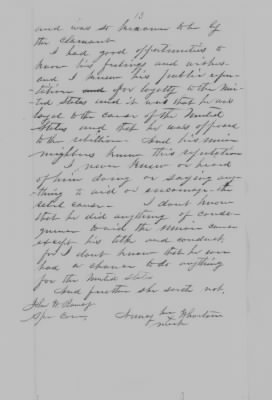 13
and was so known to be by
the claimant
I had good opportunities to
know his feelings and wishes
and I knew his public repu-
tation and for loyalty to the Uni-
ted States and it was that he was
loyal to the cause of the United
States and that he was opposed
to the rebellion. And his union
neighbors knew this reputation
I never knew or heard
of him doing or saying any-
thing to aid or encourage the
rebel cause. I dont know
that he did anything of conse-
quence to aid the union cause
except his talk and conduct,
for I dont know that he ever
had a chance to do anything
for the United States
And further she saith not.
John W. 
Spl Com
Nancy her Thornton
mark